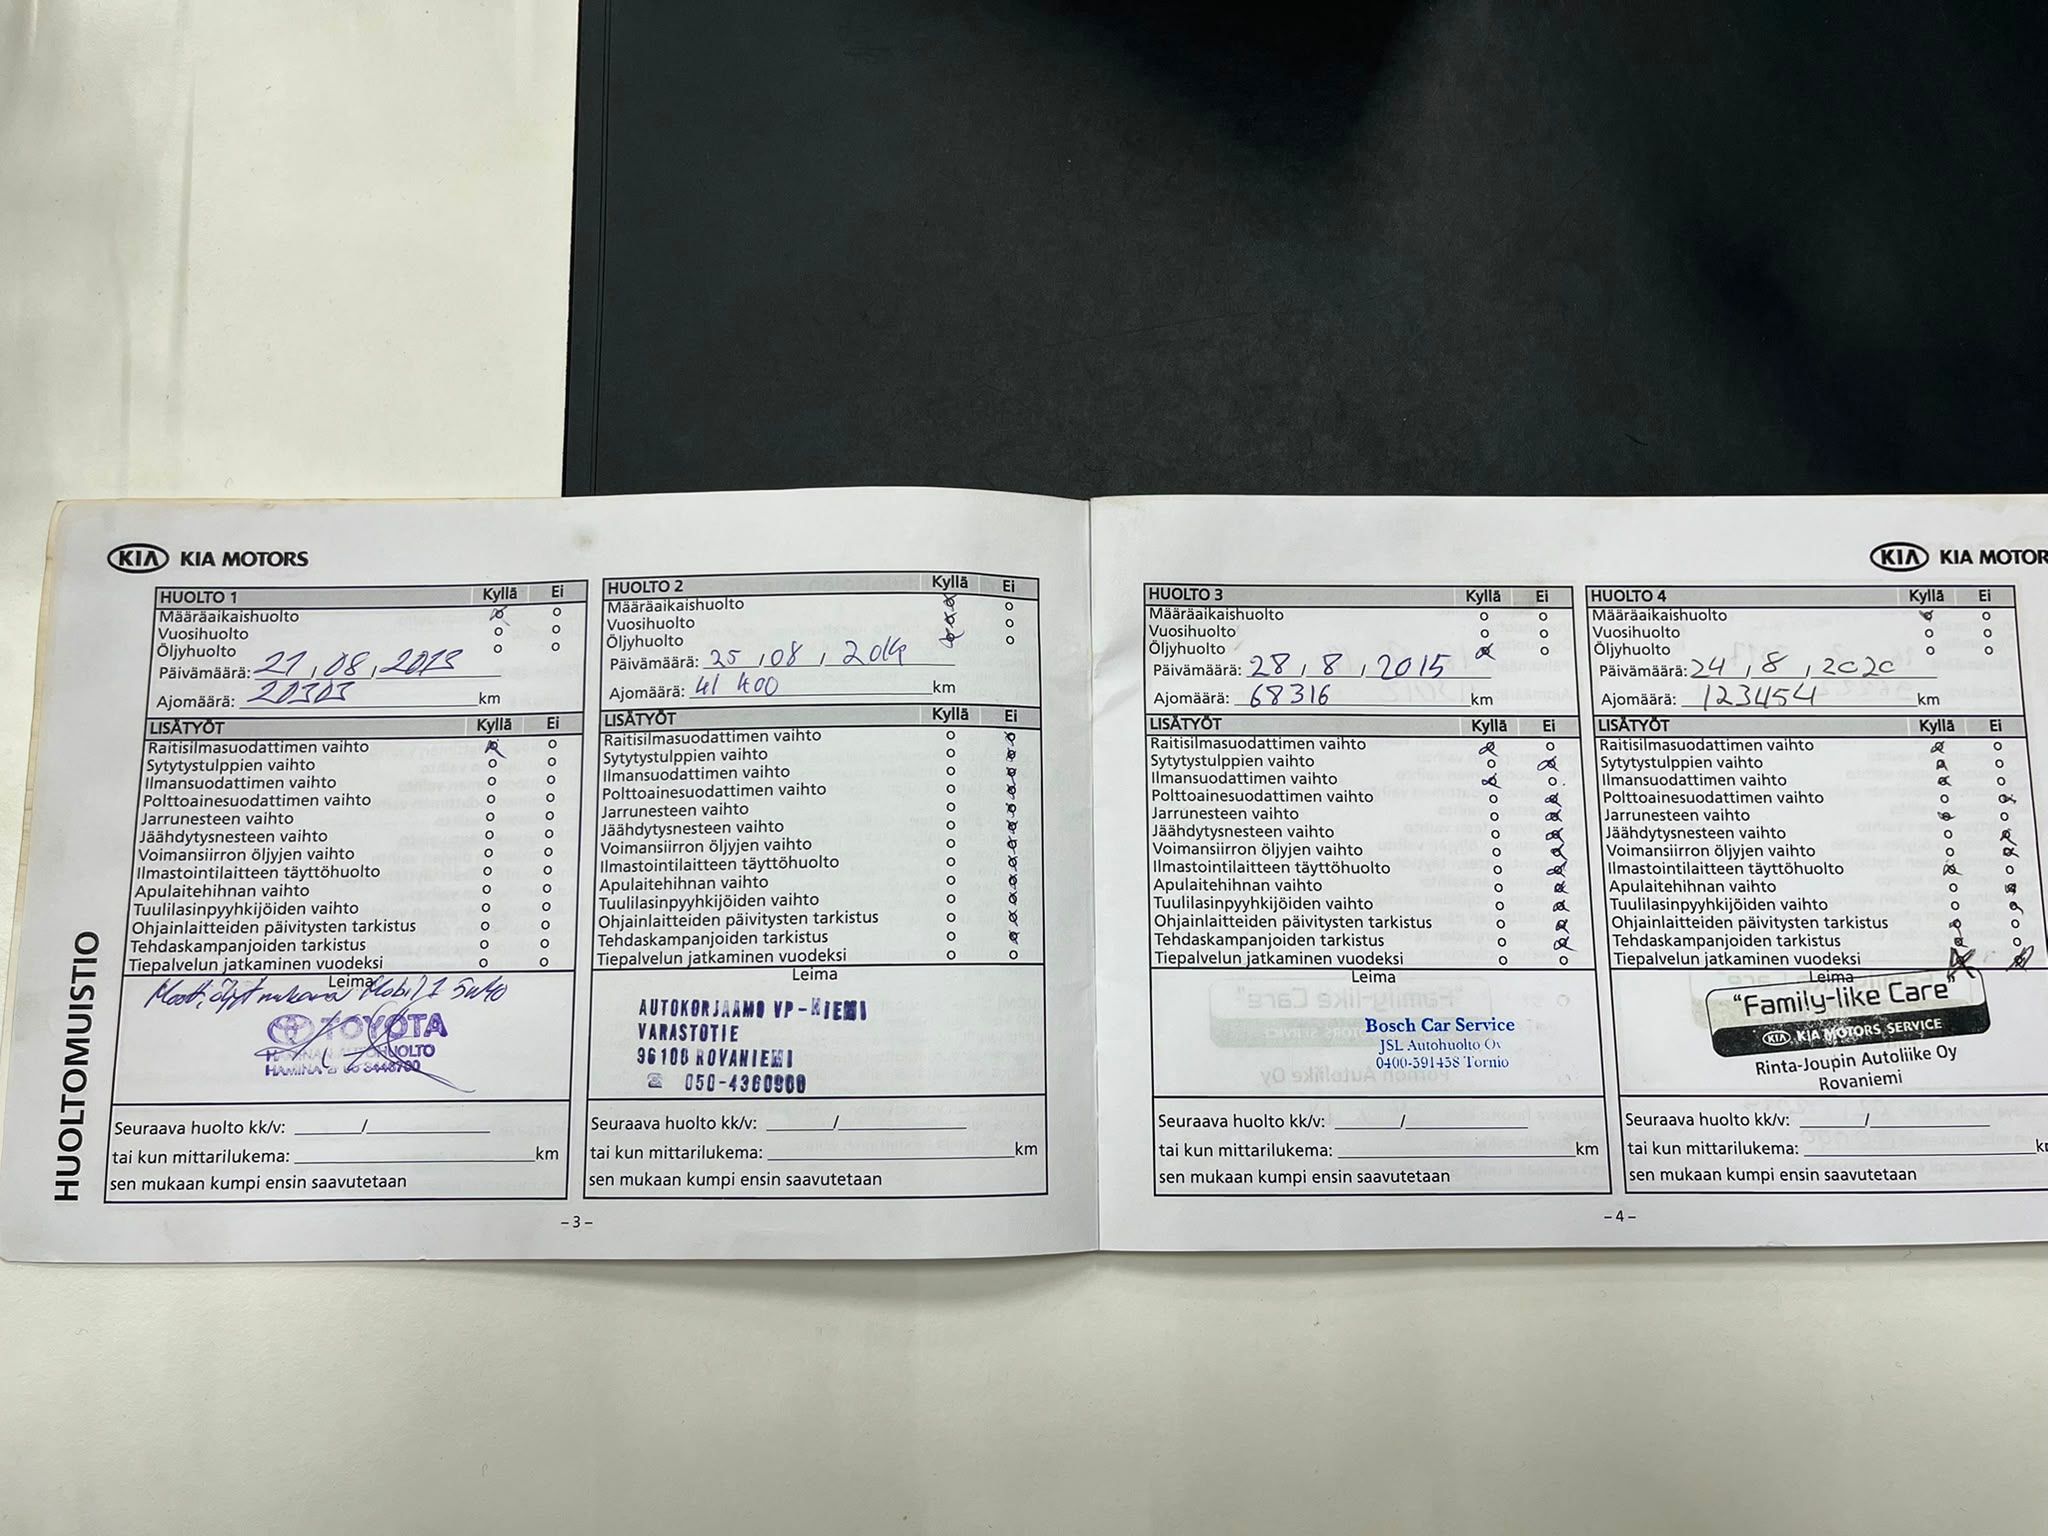 KIA KIA MOTORS
HUOLTOMUISTIO
HUOLTO 1 Kyllä Ei
Määräaikaishuolto
Vuosihuolto
Öljyhuolto
Päivämäärä: 21, 08, 2013
Ajomäärä: 20303 km
LISÄTYÖT Kyllä Ei
Raitisilmasuodattimen vaihto
Sytytystulppien vaihto
Ilmansuodattimen vaihto
Polttoainesuodattimen vaihto
Jarrunesteen vaihto
Jäähdytysnesteen vaihto
Voimansiirron öljyjen vaihto
Ilmastointilaitteen täyttöhuolto
Apulaitehihnan vaihto
Tuulilasinpyyhkijöiden vaihto
Ohjainlaitteiden päivitysten tarkistus
Tehdaskampanjoiden tarkistus
Tiepalvelun jatkaminen vuodeksi
Leima
mukana Mobil 1 5w40
TOYOTA
HAMINAN AUTOHUOLTO
HAMINA
Seuraava huolto kk/v: ______/____________
tai kun mittarilukema: ____________ km
sen mukaan kumpi ensin saavutetaan
HUOLTO 2 Kyllä Ei
Määräaikaishuolto
Vuosihuolto
Öljyhuolto
Päivämäärä: 25, 08, 2014
Ajomäärä: 41 400 km
LISÄTYÖT Kyllä Ei
Raitisilmasuodattimen vaihto
Sytytystulppien vaihto
Ilmansuodattimen vaihto
Polttoainesuodattimen vaihto
Jarrunesteen vaihto
Jäähdytysnesteen vaihto
Voimansiirron öljyjen vaihto
Ilmastointilaitteen täyttöhuolto
Apulaitehihnan vaihto
Tuulilasinpyyhkijöiden vaihto
Ohjainlaitteiden päivitysten tarkistus
Tehdaskampanjoiden tarkistus
Tiepalvelun jatkaminen vuodeksi
Leima
AUTOKORJAAMO VP-NIEMI
VARASTOTIE
96100 ROVANIEMI
☎ 050-4360900
Seuraava huolto kk/v: ______/____________
tai kun mittarilukema: ____________ km
sen mukaan kumpi ensin saavutetaan
– 3 –
KIA KIA MOTOR
HUOLTO 3 Kyllä Ei
Määräaikaishuolto
Vuosihuolto
Öljyhuolto
Päivämäärä: 28, 8, 2015
Ajomäärä: 68316 km
LISÄTYÖT Kyllä Ei
Raitisilmasuodattimen vaihto
Sytytystulppien vaihto
Ilmansuodattimen vaihto
Polttoainesuodattimen vaihto
Jarrunesteen vaihto
Jäähdytysnesteen vaihto
Voimansiirron öljyjen vaihto
Ilmastointilaitteen täyttöhuolto
Apulaitehihnan vaihto
Tuulilasinpyyhkijöiden vaihto
Ohjainlaitteiden päivitysten tarkistus
Tehdaskampanjoiden tarkistus
Tiepalvelun jatkaminen vuodeksi
Leima
Bosch Car Service
JSL Autohuolto Oy
0400-591458 Tornio
Seuraava huolto kk/v: ______/____________
tai kun mittarilukema: ____________ km
sen mukaan kumpi ensin saavutetaan
HUOLTO 4 Kyllä Ei
Määräaikaishuolto
Vuosihuolto
Öljyhuolto
Päivämäärä: 24, 8, 2020
Ajomäärä: 123454 km
LISÄTYÖT Kyllä Ei
Raitisilmasuodattimen vaihto
Sytytystulppien vaihto
Ilmansuodattimen vaihto
Polttoainesuodattimen vaihto
Jarrunesteen vaihto
Jäähdytysnesteen vaihto
Voimansiirron öljyjen vaihto
Ilmastointilaitteen täyttöhuolto
Apulaitehihnan vaihto
Tuulilasinpyyhkijöiden vaihto
Ohjainlaitteiden päivitysten tarkistus
Tehdaskampanjoiden tarkistus
Tiepalvelun jatkaminen vuodeksi
Leima
"Family-like Care"
KIA KIA MOTORS SERVICE
Rinta-Joupin Autoliike Oy
Rovaniemi
Seuraava huolto kk/v: ______/____________
tai kun mittarilukema: ____________ k
sen mukaan kumpi ensin saavutetaan
– 4 –